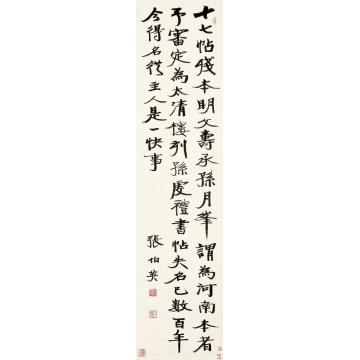 十七帖残本明文壽承孫月峯謂為河南本者
予審定為太清樓列孫虔禮書帖失名已數百年
今得名從主人是一快事
張伯英